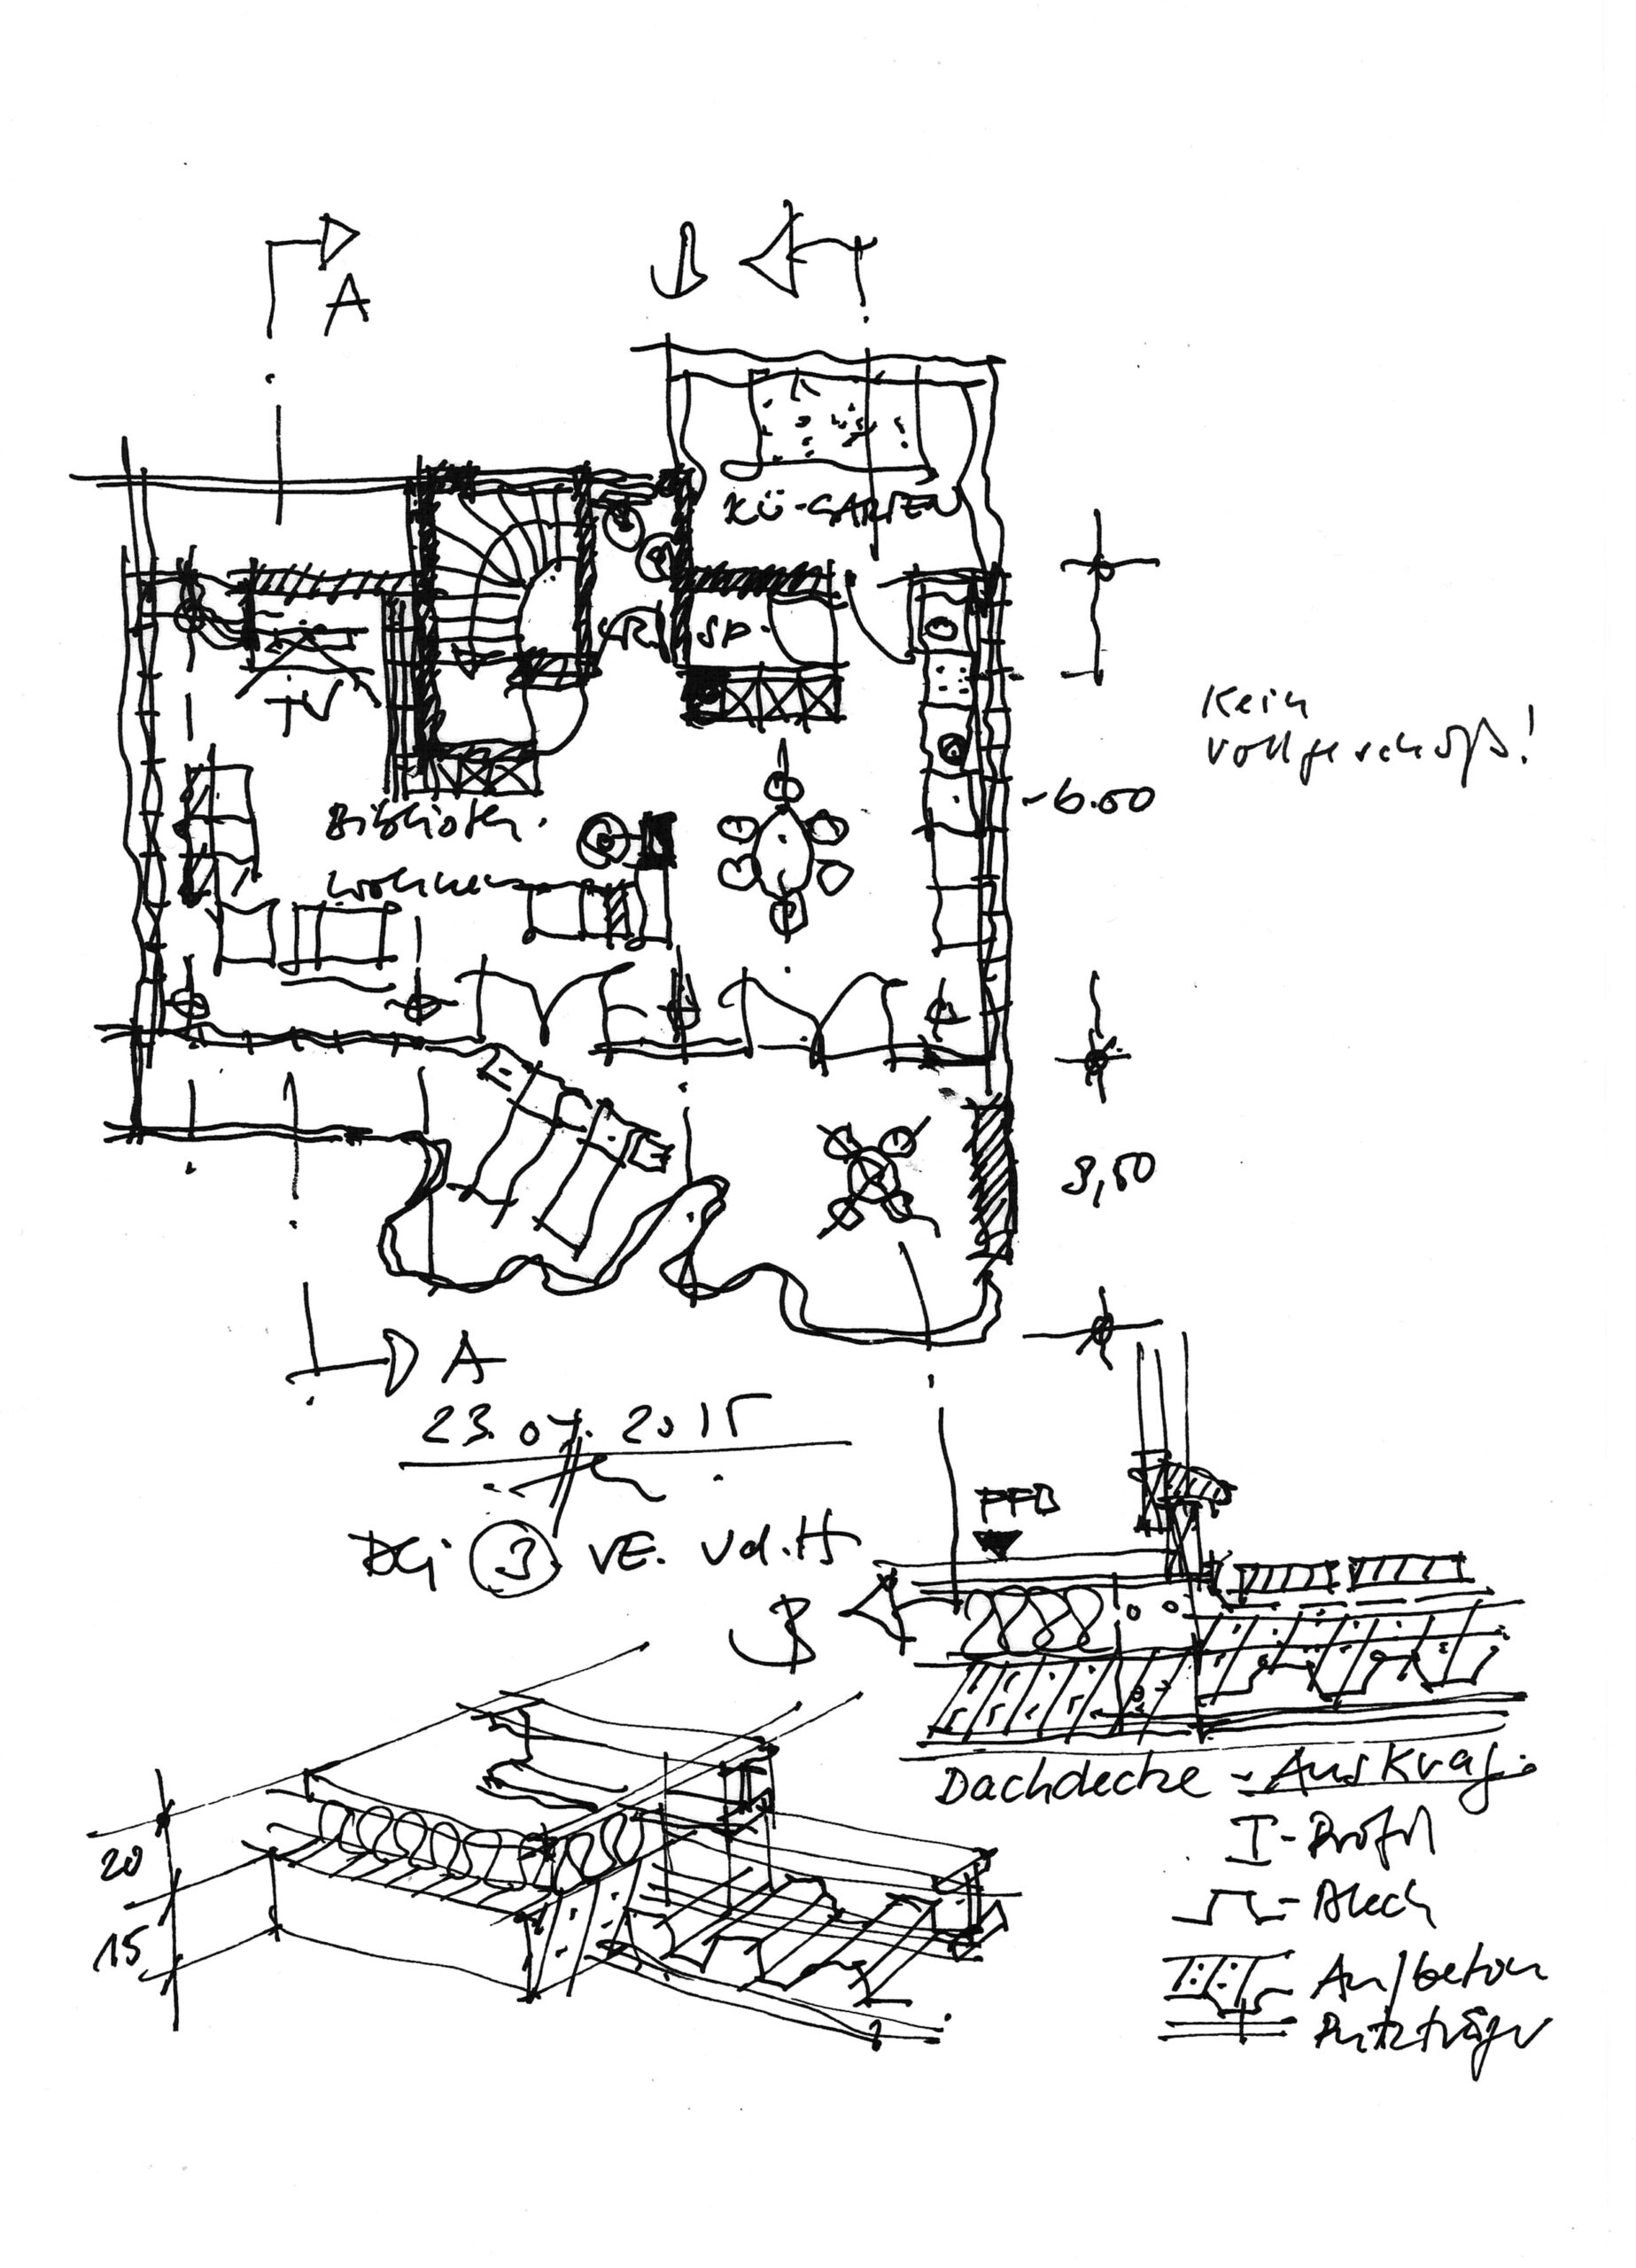 A
KÜ-GARTEN
AR
SP.
TV
Kein
Vollgeschoß!
-6.00
Biblioth.
Wohnen
3,50
A
23.07.2015
FFB
DG: 3 VE. Vd.H
B
Dachdecke - Auskrag.
I-Profil
20
-Blech
15
Aufbeton
Putzträger